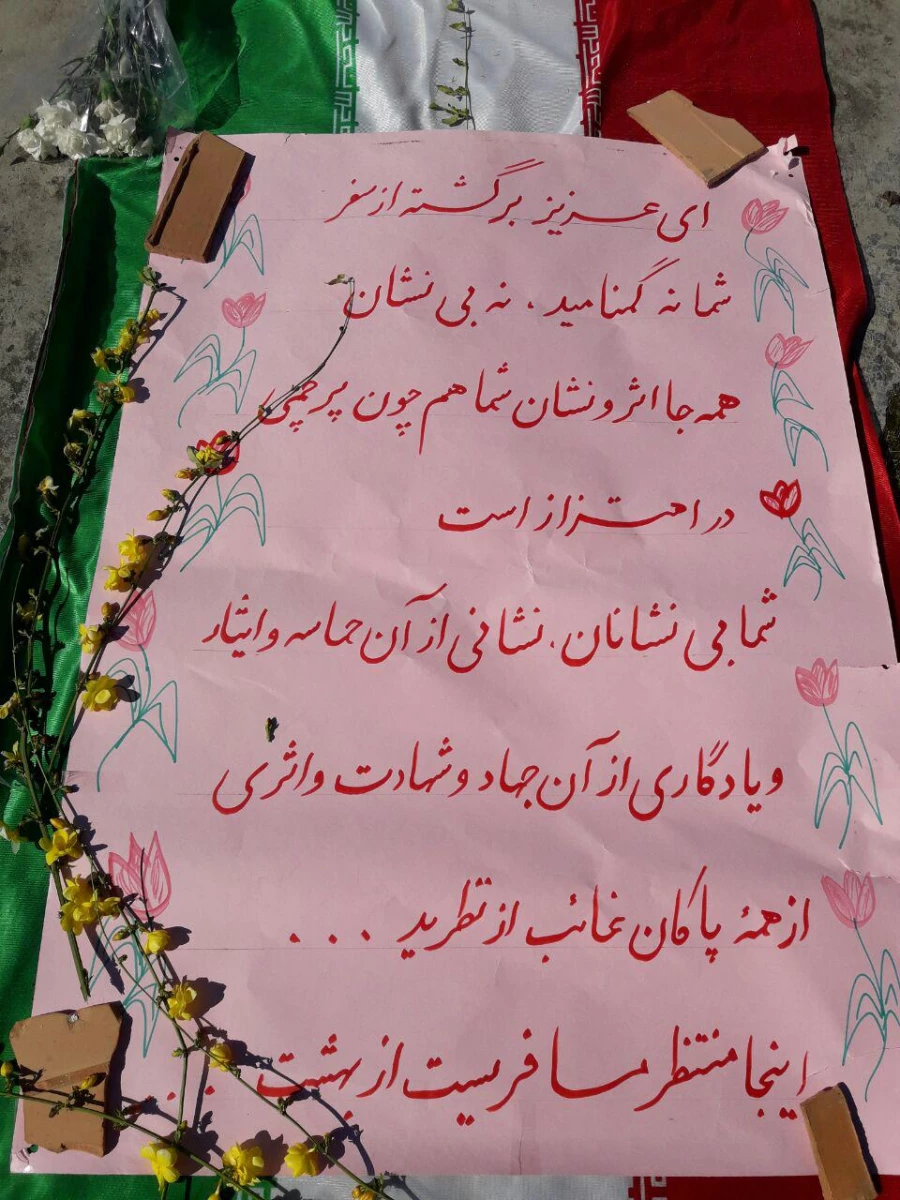 ای عزیز برگشته از سفر
شما نه گمنامید، نه بی نشان
همه جا اثر و نشان شما هم چون پرچمی
در اهتزاز است
شما بی نشانان، نشانی از آن حماسه و ایثار
و یادگاری از آن جهاد و شهادت و اثری
از همهٔ پاکان غائب از نظرید ...
اینجا منتظر مسافریست از بهشت ...